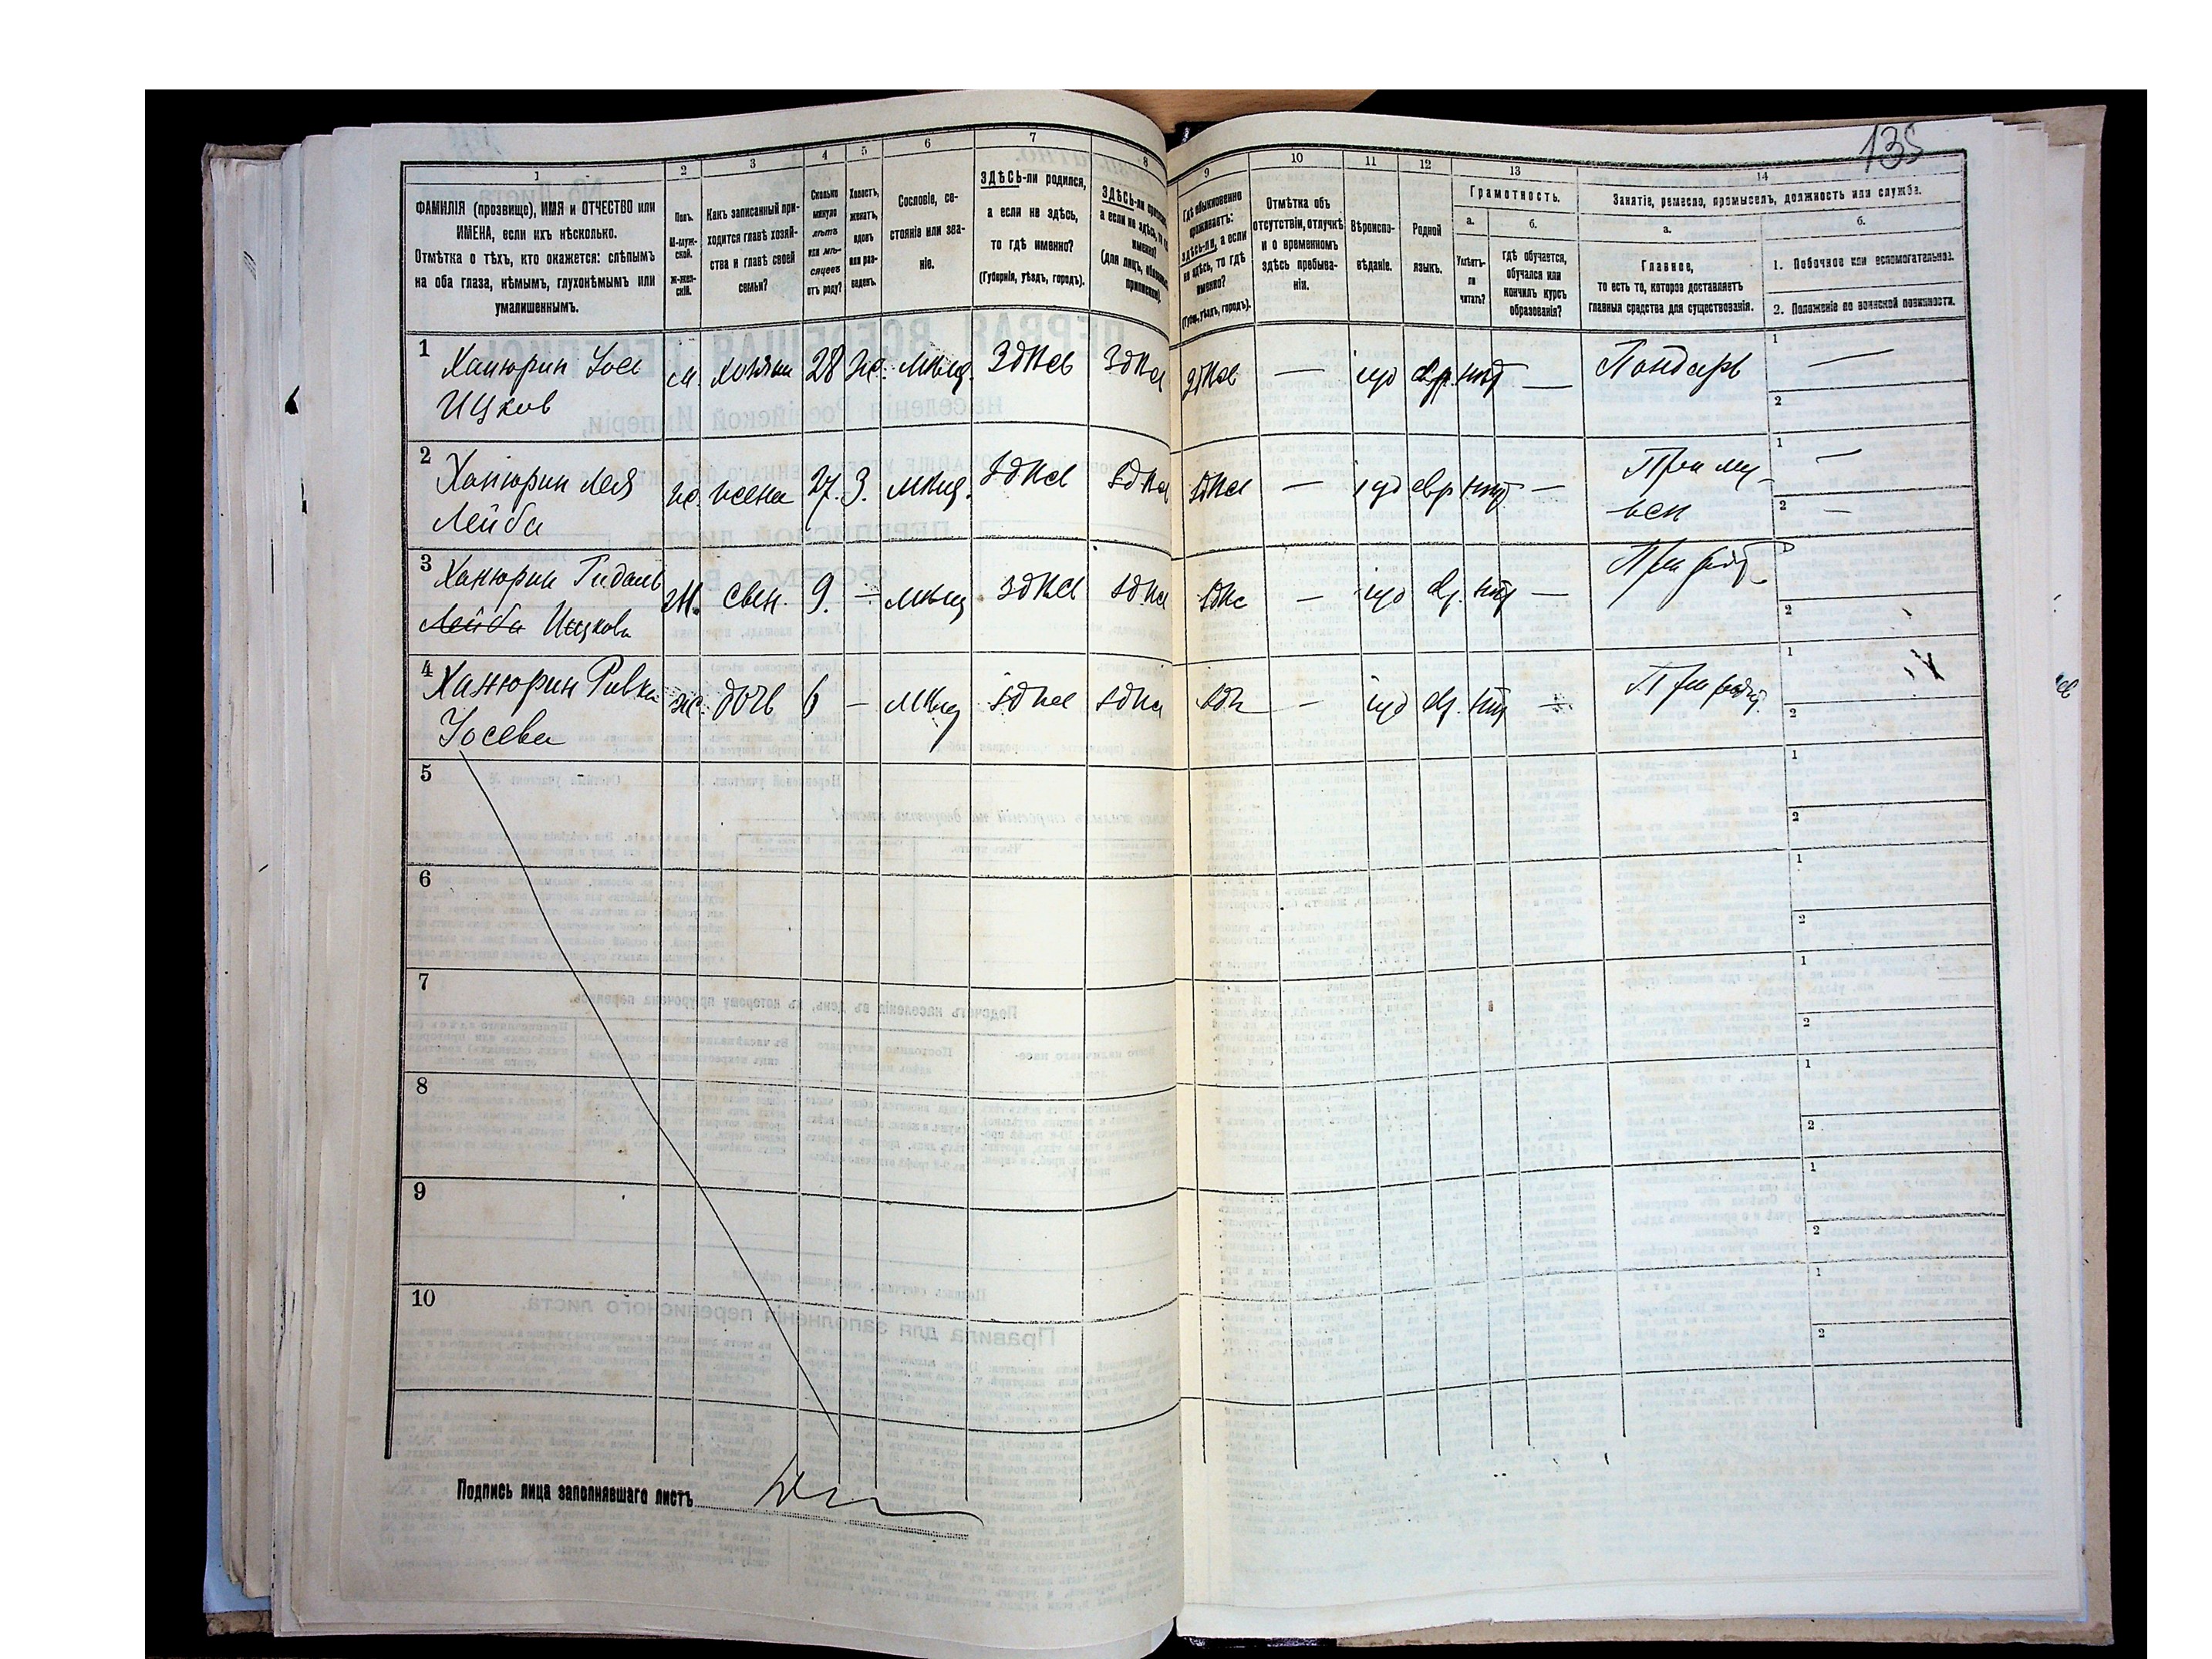 135
1 2 3 4 5 6 7 8 9 10 11 12 13 14
ФАМИЛІЯ (прозвище), ИМЯ и ОТЧЕСТВО или
ИМЕНА, если ихъ нѣсколько.
Отмѣтка о тѣхъ, кто окажется: слѣпымъ
на оба глаза, нѣмымъ, глухонѣмымъ или
умалишеннымъ.
Полъ.
М-муж-
ской.
Ж-жен-
скій.
Какъ записанный при-
ходится главѣ хозяй-
ства и главѣ своей
семьи?
Сколько
минуло
лѣтъ
или мѣ-
сяцевъ
отъ роду?
Холостъ,
женатъ,
вдовъ
или раз-
веденъ.
Сословіе, со-
стояніе или зва-
ніе.
ЗДѢСЬ-ли родился,
а если не здѣсь,
то гдѣ именно?
(Губернія, уѣздъ, городъ).
ЗДѢСЬ-ли
а если не здѣсь, то
именно?
(для лицъ,
Гдѣ обыкновенно
проживаетъ:
здѣсь-ли, а если
не здѣсь, то гдѣ
именно?
(Губ., уѣздъ, городъ).
Отмѣтка объ
отсутствіи, отлучкѣ
и о временномъ
здѣсь пребыва-
ніи.
Вѣроиспо-
вѣданіе.
Родной
языкъ.
Грамотность.
а.
Умѣетъ-
ли
читать?
б.
гдѣ обучается,
обучался или
кончилъ курсъ
образованія?
Занятіе, ремесло, промыселъ, должность или служба.
а.
Главное,
то есть то, которое доставляетъ
главныя средства для существованія.
б.
1. Побочное или вспомогательное.
2. Положеніе по воинской повинности.
1 Ханюрин Іосе м. хозяин 28 ж. мѣщ. Здѣсь Здѣсь здѣсь — іуд евр. нѣт — 1 —
Ицков 2
2 Ханюрин Лея ж. жена 27. З. мѣщ. Здѣсь здѣсь здѣсь — іуд евр нѣт — При му- 1 —
Лейба жен 2 —
3 Ханюрин м. сын. 9. — мѣщ. здѣсь здѣсь здѣс — іуд евр. нѣт —
Лейба Ицкова 2
4 Ханюрин Ривка ж. дочь 6 — мѣщ здѣсь здѣсь здѣ — іуд евр. нѣт — 1
Іосева 2
5 1
2
6 1
2
7 1
2
8 1
2
9 1
2
10 1
2
Подпись лица заполнявшаго листъ